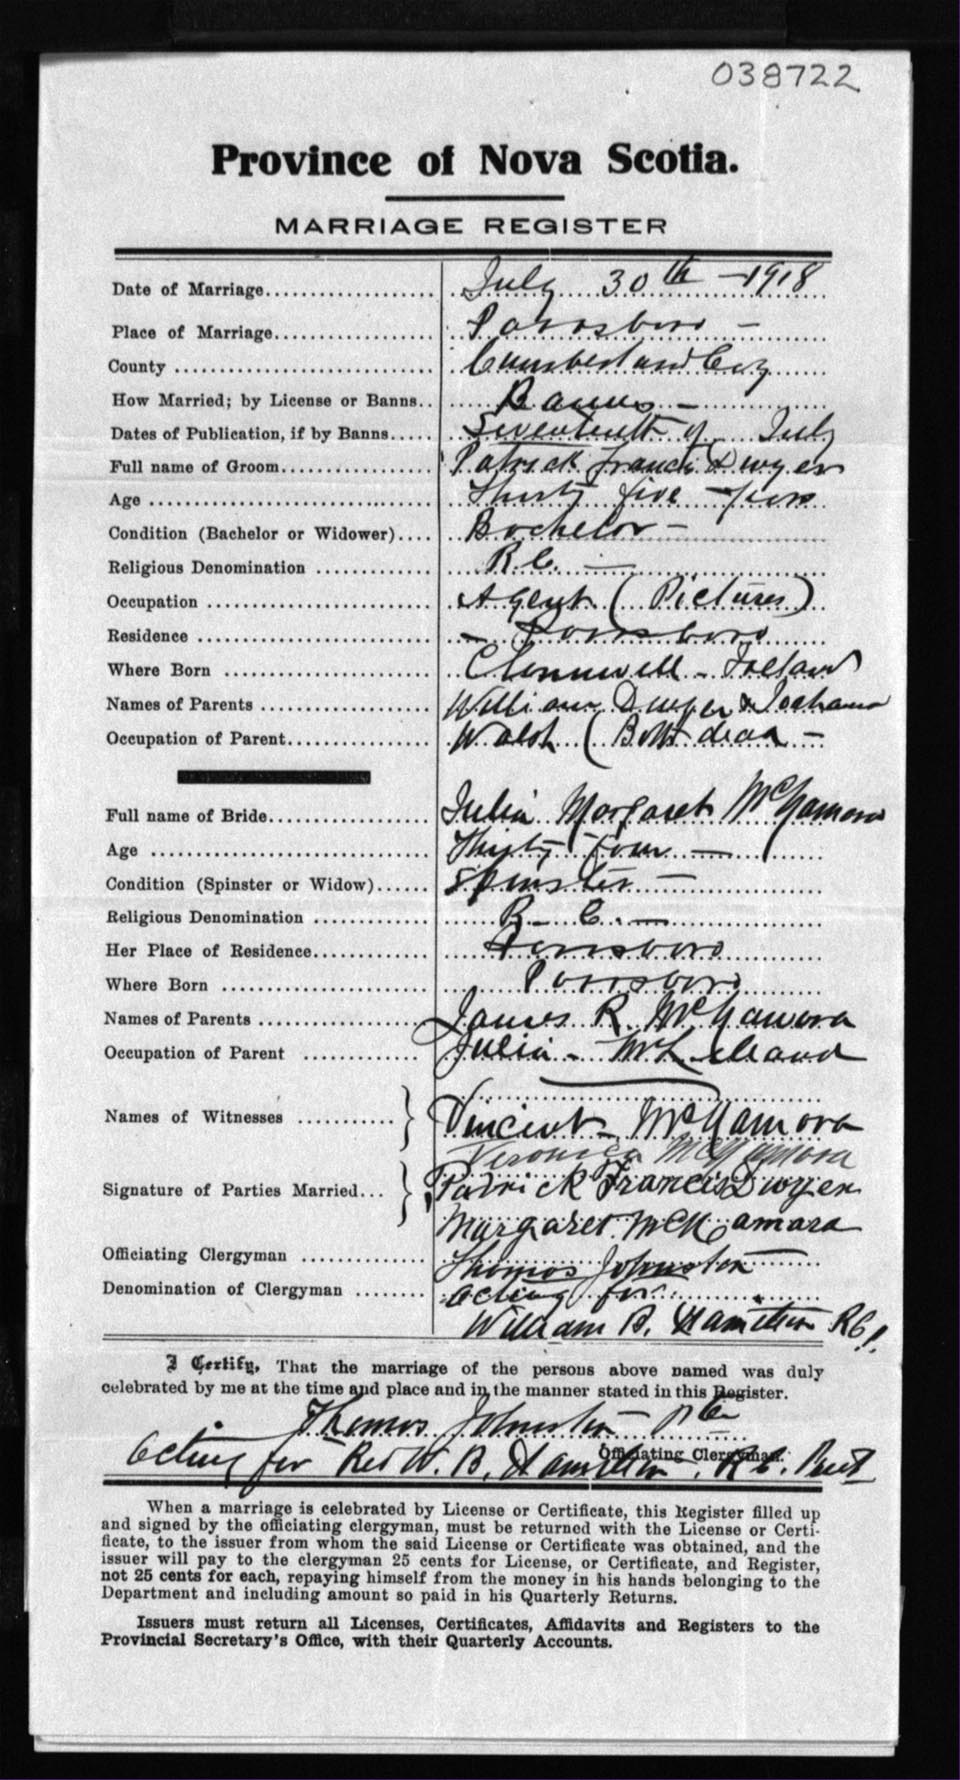 038722
Province of Nova Scotia.
MARRIAGE REGISTER
Date of Marriage.................... July 30th - 1918
Place of Marriage................... Parrsboro -
County ............................. Cumberland Co'y
How Married; by License or Banns.. Banns -
Dates of Publication, if by Banns..... Seventeenth of July
Full name of Groom.................. Patrick Francis Dwyer
Age ................................ Thirty five years
Condition (Bachelor or Widower).... Bachelor -
Religious Denomination ............. R.C. -
Occupation ......................... Agent (Pictures)
Residence .......................... - Parrsboro
Where Born ........................ - Ireland
Names of Parents ................... William Dwyer & Johanna
Occupation of Parent................ Walsh (Both dead -
Full name of Bride.................. Julia Margaret McNamara
Age ................................ Thirty four -
Condition (Spinster or Widow)...... Spinster -
Religious Denomination ............. R - C. -
Her Place of Residence.............. Parrsboro
Where Born ........................ Parrsboro
Names of Parents ................... James R. McNamara
Occupation of Parent ............. Julia -
Names of Witnesses ........... } Vincent McNamara
Veronica McNamara
Signature of Parties Married... } Patrick Francis Dwyer
Margaret McNamara
Officiating Clergyman .............. Thomas Johnston
Denomination of Clergyman ........ acting for
William B. Hamilton R.C.
I Certify, That the marriage of the persons above named was duly
celebrated by me at the time and place and in the manner stated in this Register.
Thomas Johnston
Officiating Clergyman.
acting for Rev W. B. Hamilton, R.C. Priest
When a marriage is celebrated by License or Certificate, this Register filled up
and signed by the officiating clergyman, must be returned with the License or Certi-
ficate, to the issuer from whom the said License or Certificate was obtained, and the
issuer will pay to the clergyman 25 cents for License, or Certificate, and Register,
not 25 cents for each, repaying himself from the money in his hands belonging to the
Department and including amount so paid in his Quarterly Returns.
Issuers must return all Licenses, Certificates, Affidavits and Registers to the
Provincial Secretary's Office, with their Quarterly Accounts.